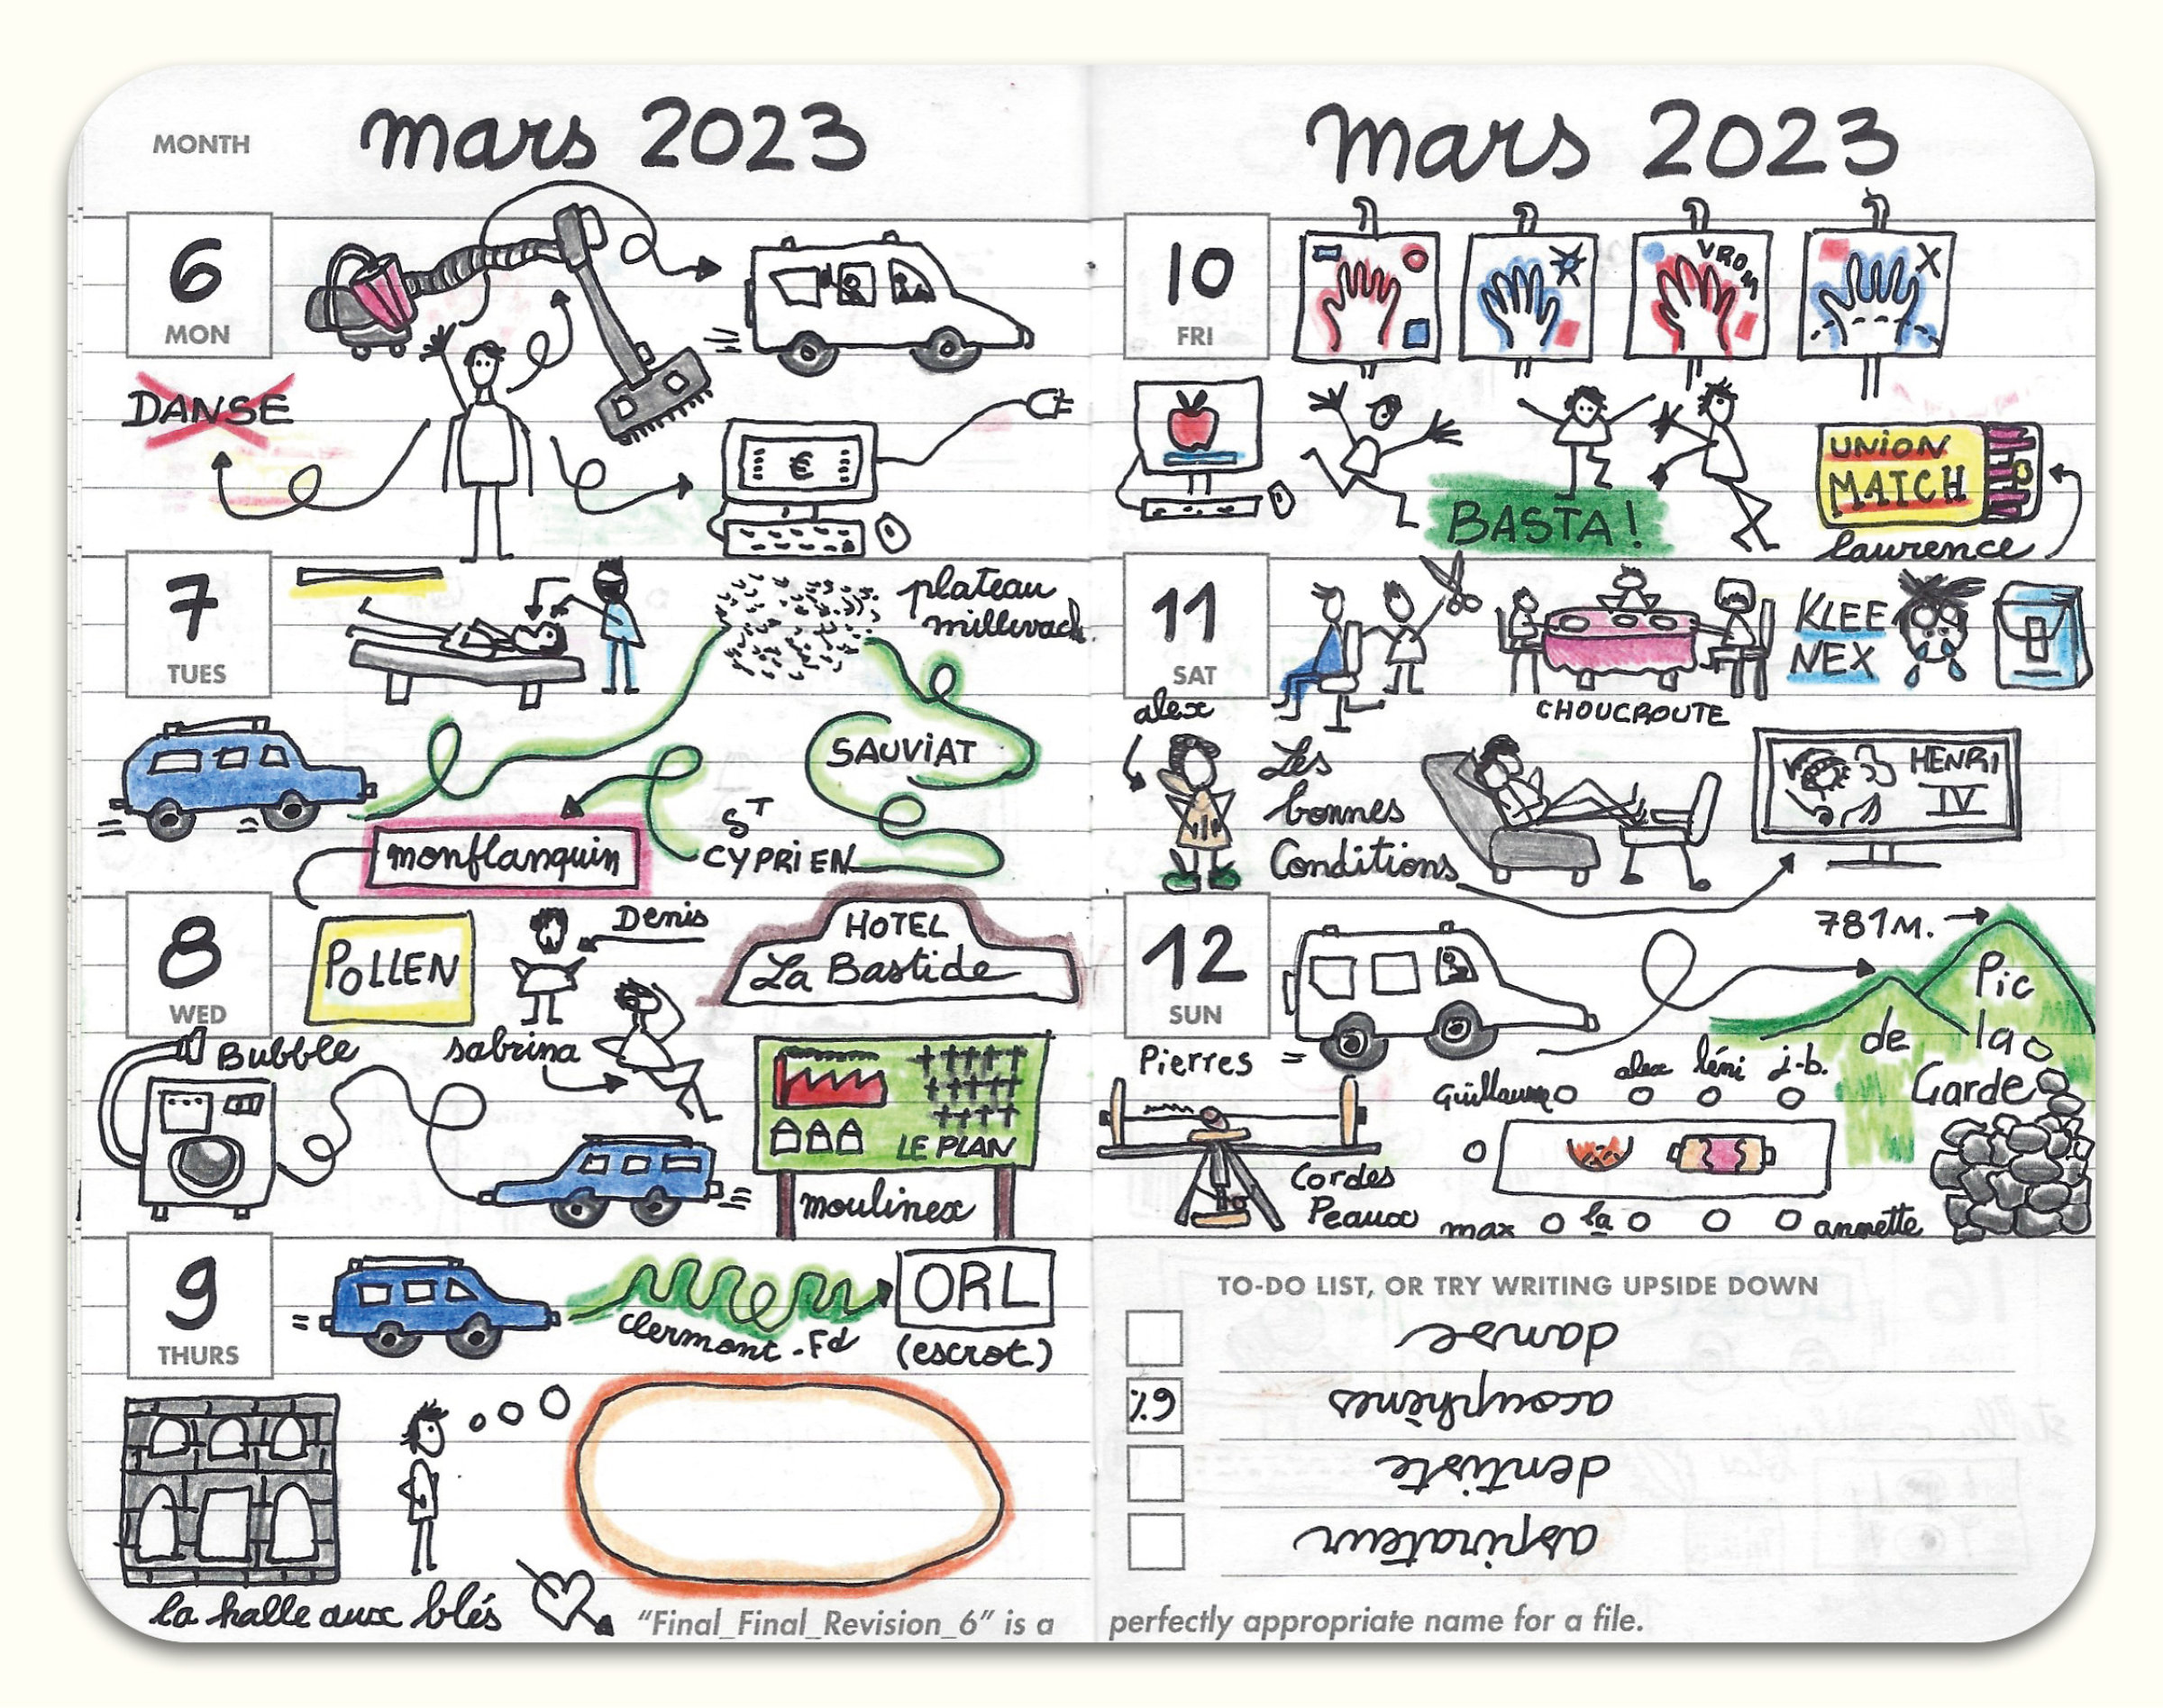 MONTH
mars 2023
6
MON
DANSE
€
7
TUES
plateau
millevach.
SAUVIAT
ST
CYPRIEN
monflanquin
8
WED
POLLEN
Denis
HOTEL
La Bastide
Bubble
sabrina
LE PLAN
moulinex
9
THURS
clermont-Fd
ORL
(escrot.)
la halle aux blés
"Final_Final_Revision_6" is a
mars 2023
10
FRI
VROM
X
BASTA!
UNION
MATCH
laurence
11
SAT
KLEE
NEX
CHOUCROUTE
alex
Les
bonnes
Conditions
HENRI
IV
12
SUN
781M.
Pic
de la
Garde
Pierres =
Guillaume
alex léni j-b.
Cordes
Peaux
max la annette
TO-DO LIST, OR TRY WRITING UPSIDE DOWN
danse
acouphènes
dentiste
aspirateur
perfectly appropriate name for a file.